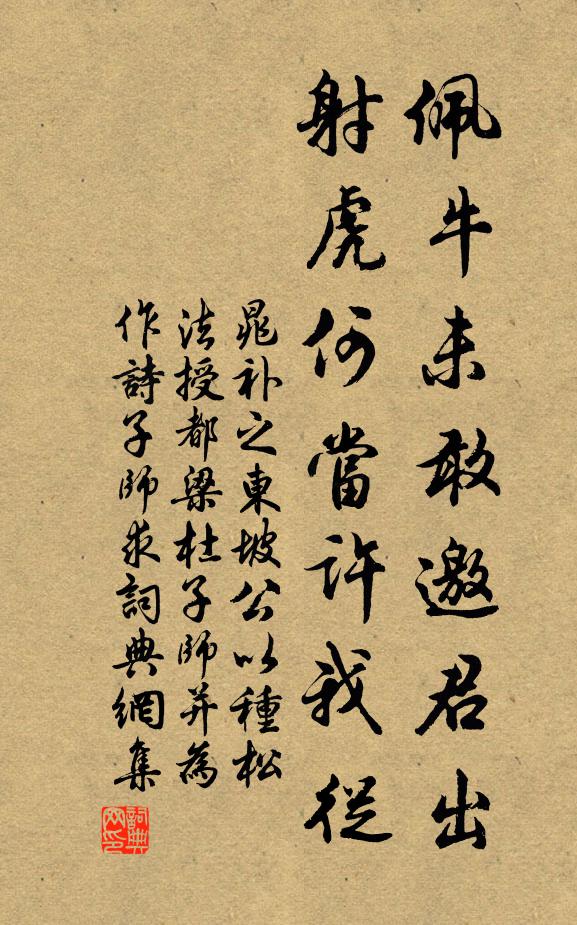 佩牛未敢邀君出
射虎何當許我從
晁补之東坡公以種松
法授都梁杜子師并為
作詩子師求詞典網集
詞典網印